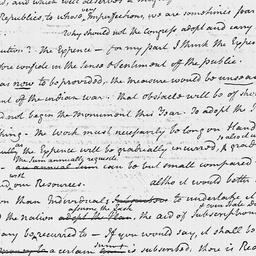 , and which will deserves a
Republics, to whose Imperfections, we are sometimes par
very
Why should not the Congress adopt and carry
ution? The Expence — for my part I think the Expe
fore confide in the Sense & Sentiment of the public.
as now to be provided, the measure would be unsea
nt of the indian war. that obstacle will be of sho
d not begin the Monument this Year. To adopt the
thing — the work must necessarily be long on Hand
the Expence will be gradually incurred, & grad
the sum annually requisite
an annual sum can be but small compared
with our Resources. altho it would both
on than Individuals to undertake
assume the Task
d the nation adopt the Plan, the aid of Subscription
ay be recurred to — If you would say, it shall be
a certain sum is subscribed, there is Rea